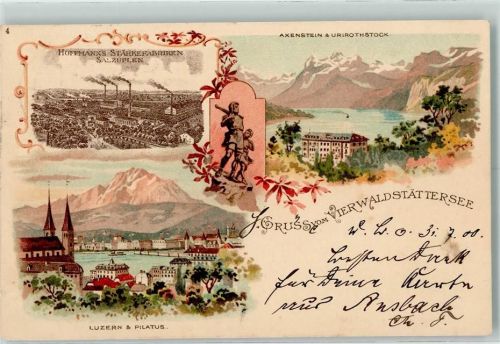 4
HOFFMANN'S STÄRKEFABRIKEN
SALZUFLEN.
AXENSTEIN & URIROTHSTOCK
GRUSS VOM VIERWALDSTÄTTERSEE
31.7.00.
besten Dank
für Deine Karte
aus Ansbach
LUZERN & PILATUS.